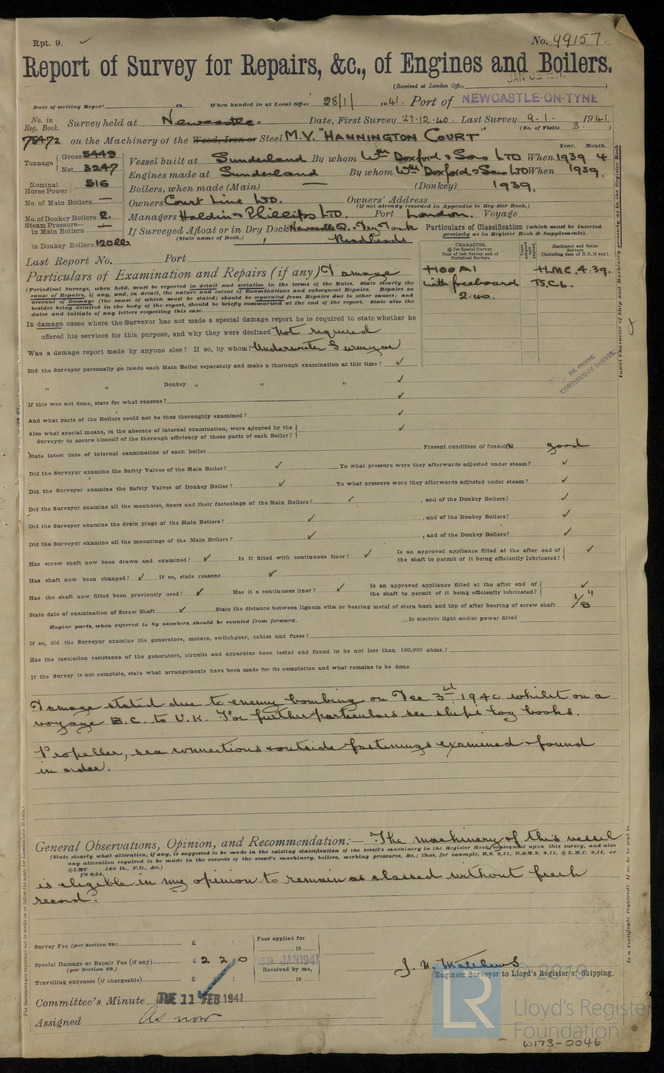 Rpt. 9.
No. 99157.
Report of Survey for Repairs, &c., of Engines and Boilers.
(Received at London Office
Date of writing Report 19 When handed in at Local Office 28/1/ 1941 Port of NEWCASTLE-ON-TYNE
No. in Reg. Book. Survey held at Newcastle. Date, First Survey 27-12-40 Last Survey 9-1- 1941
(No. of Visits 3.)
on the Machinery of the Wood, Iron or Steel M.V. "HANNINGTON COURT"
Tonnage Gross 5449
Net 3247
Vessel built at Sunderland By whom Wm Doxford & Sons LTD When 1939 4
Engines made at Sunderland By whom Wm Doxford & Sons LTD When 1939,
Nominal Horse Power 516
Boilers, when made (Main) — (Donkey) 1939.
No. of Main Boilers —
Owners Court Line LTD. Owners' Address
(if not already recorded in Appendix to Register Book.)
No. of Donkey Boilers 2.
Managers Haldin & Phillips LTD. Port London. Voyage
Steam Pressure—
in Main Boilers —
If Surveyed Afloat or in Dry Dock
(State name of Dock.)
in Donkey Boilers 120 lbs
Particulars of Classification (which must be inserted precisely as in Register Book & Supplements)
+100A1 +LMC 4.39.
with freeboard T.S.CL.
2.40.
Last Report No. Port
Particulars of Examination and Repairs (if any) Damage
(Periodical Surveys, when held, must be reported in detail and seriatim in the terms of the Rules. State clearly the cause of Repairs, if any, and, in detail, the nature and extent of Examinations and subsequent Repairs. Repairs on account of Damage (the cause of which must be stated) should be separated from Repairs due to other causes; and besides being detailed in the body of the report, should be briefly summarised at the end of the report. State also the dates and initials of any letters respecting this case.
In damage cases where the Surveyor has not made a special damage report he is required to state whether he
offered his services for this purpose, and why they were declined Not required
Was a damage report made by anyone else? If so, by whom? Underwriter Surveyor
Did the Surveyor personally go inside each Main Boiler separately and make a thorough examination at this time? ✓
" " Donkey " " " ✓
If this was not done, state for what reasons? ✓
And what parts of the Boilers could not be thus thoroughly examined? ✓
Also what special means, in the absence of internal examination, were adopted by the Surveyor to assure himself of the thorough efficiency of those parts of each Boiler? ✓
State latest date of internal examination of each boiler Present condition of funnel good
Did the Surveyor examine the Safety Valves of the Main Boiler? ✓ To what pressure were they afterwards adjusted under steam? ✓
Did the Surveyor examine the Safety Valves of Donkey Boiler? ✓ To what pressure were they afterwards adjusted under steam? ✓
Did the Surveyor examine all the manholes, doors and their fastenings of the Main Boilers? ✓ , and of the Donkey Boilers? ✓
Did the Surveyor examine the drain plugs of the Main Boilers? ✓ , and of the Donkey Boilers? ✓
Did the Surveyor examine all the mountings of the Main Boilers? ✓ , and of the Donkey Boilers? ✓
Has screw shaft now been drawn and examined? ✓ Is it fitted with continuous liner? ✓ Is an approved appliance fitted at the after end of the shaft to permit of it being efficiently lubricated? ✓
Has shaft now been changed? ✓ If so, state reasons ✓
Has the shaft now fitted been previously used? ✓ Has it a continuous liner? ✓ Is an approved appliance fitted at the after end of the shaft to permit of it being efficiently lubricated? ✓
State date of examination of Screw Shaft ✓ State the distance between lignum vitæ or bearing metal of stern bush and top of after bearing of screw shaft 1/8"
Engine parts, when referred to by numbers, should be counted from forward. Is electric light and/or power fitted
If so, did the Surveyor examine the generators, motors, switchgear, cables and fuses?
Has the insulation resistance of the generators, circuits and apparatus been tested and found to be not less than 100,000 ohms?
If the Survey is not complete, state what arrangements have been made for its completion and what remains to be done
Damage stated due to enemy bombing on Dec 3rd 1940 whilst on a
voyage B.C. to U.K. For further particulars see ships log books.
Propeller, sea connections & outside fastenings examined & found
in order.
General Observations, Opinion, and Recommendation:— The machinery of this vessel
is eligible in my opinion to remain as classed without fresh
record.
Survey Fee (per Section 29) £ : :
Special Damage or Repair Fee (if any) (per Section 29.) £ 2 2 0
Travelling expenses (if chargeable) £ : :
Fees applied for
19
29 JAN 1941
Received by me,
19
J. N. Matthews
Engineer Surveyor to Lloyd's Register of Shipping.
Committee's Minute TUE 11 FEB 1941
Assigned As now
LR
Lloyd's Register
Foundation
W173-0046